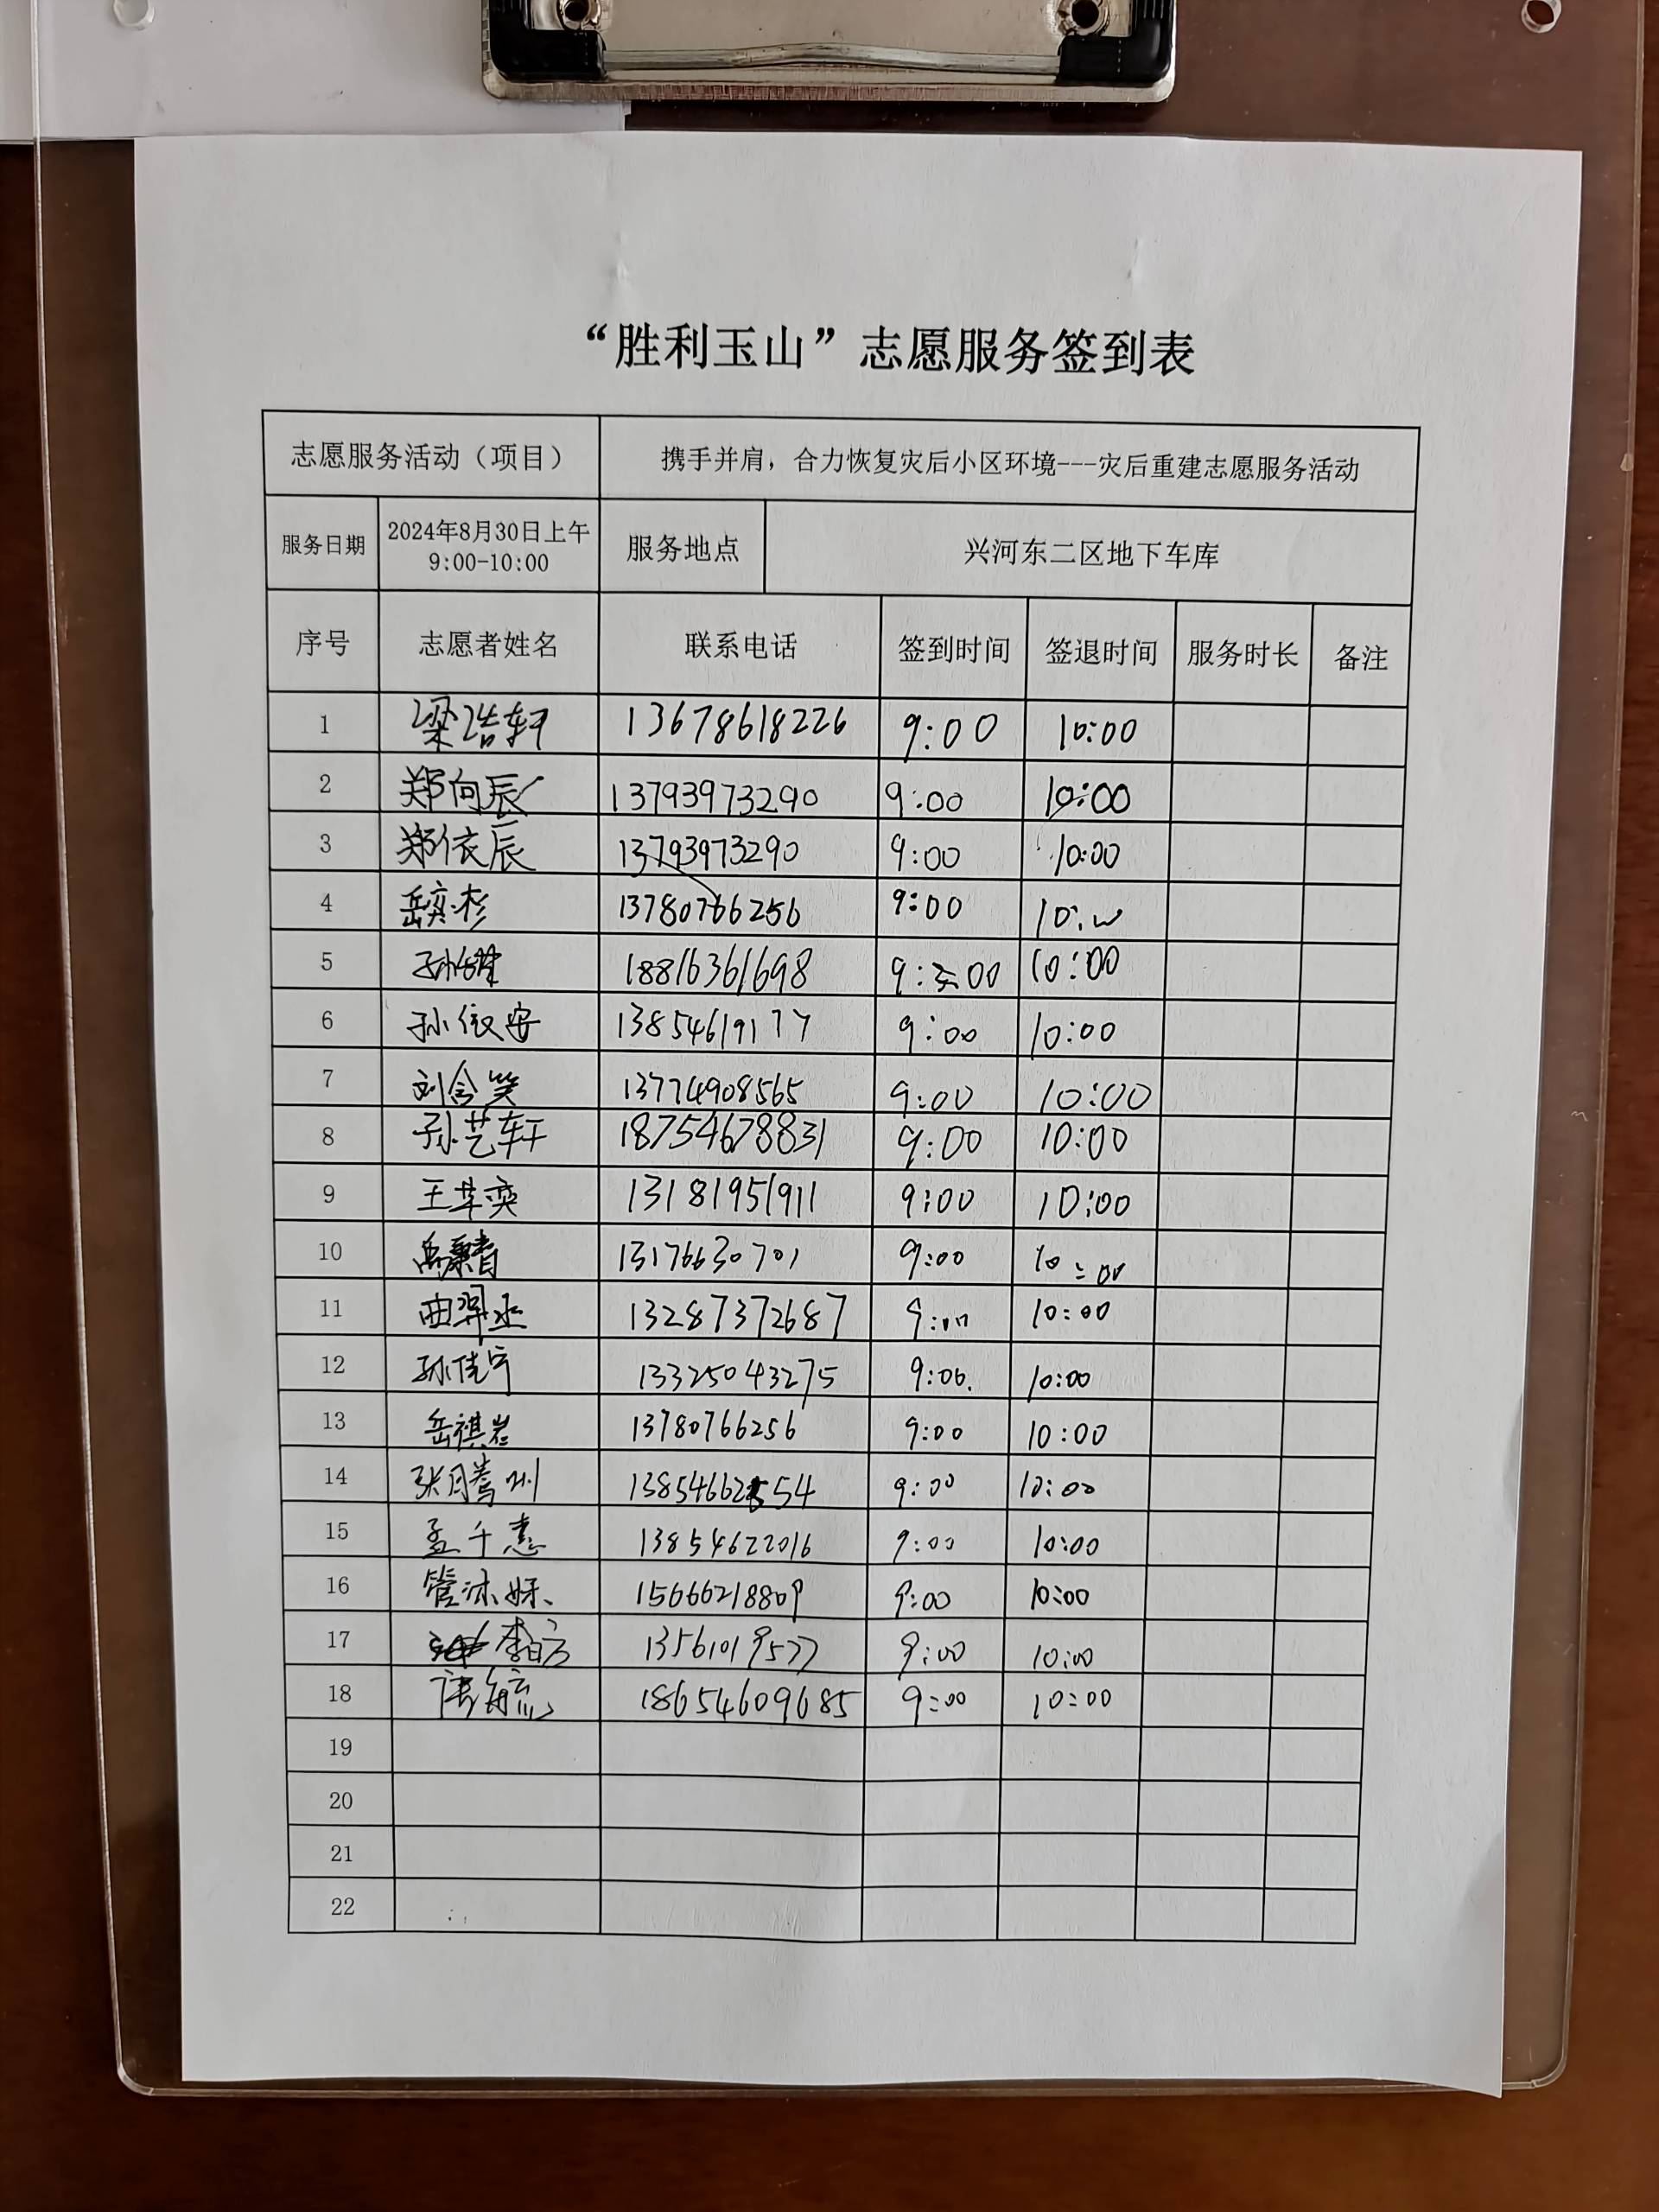 “胜利玉山”志愿服务签到表
志愿服务活动（项目） 携手并肩，合力恢复灾后小区环境---灾后重建志愿服务活动
服务日期 2024年8月30日上午 9:00-10:00 服务地点 兴河东二区地下车库
序号 志愿者姓名 联系电话 签到时间 签退时间 服务时长 备注
1 梁浩轩 13678618226 9:00 10:00
2 郑向辰 13793973290 9:00 10:00
3 郑依辰 13793973290 9:00 10:00
4 岳奕杉 13780766256 9:00 10:00
5 18816361698 9:00 10:00
6 孙依安 13854619177 9:00 10:00
7 刘含笑 13774908565 9:00 10:00
8 孙艺轩 18754678831 9:00 10:00
9 王芊奕 13181951911 9:00 10:00
10 13176630701 9:00 10:00
11 13287372687 9:00 10:00
12 孙佳宁 13325043275 9:00 10:00
13 岳祺岩 13780766256 9:00 10:00
14 9:00 10:00
15 孟千惠 13854622016 9:00 10:00
16 管沐妍 15666218809 9:00 10:00
17 13561019577 9:00 10:00
18 18654609685 9:00 10:00
19
20
21
22